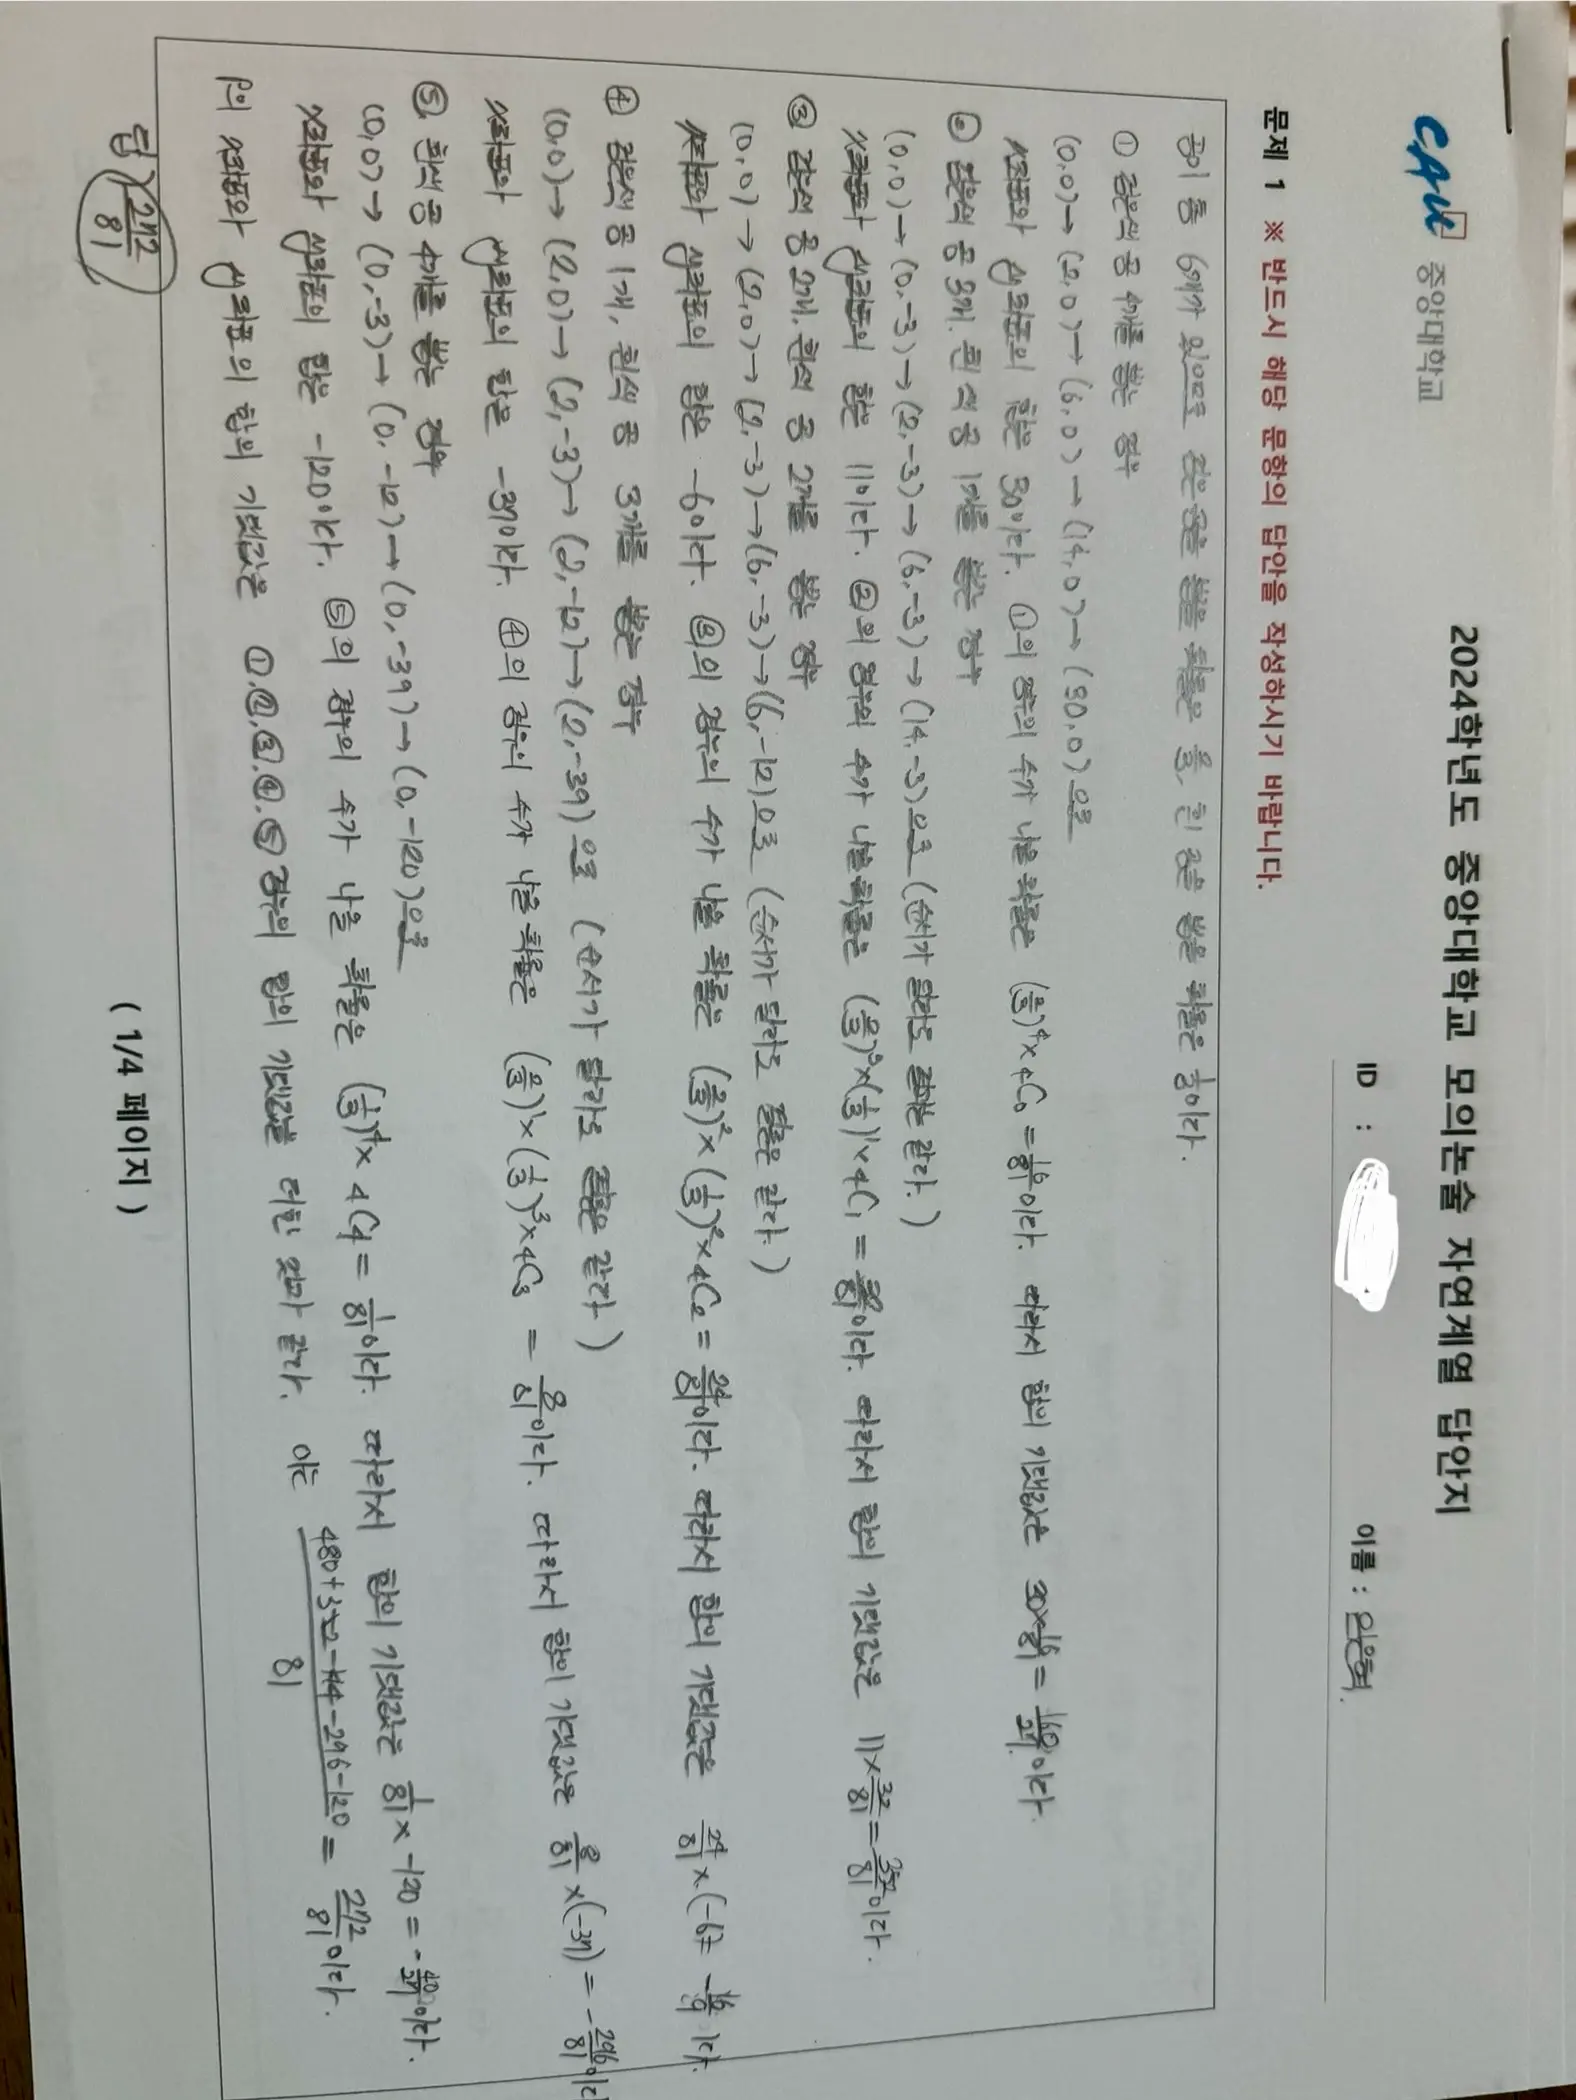 CAU 중앙대학교
2024학년도 중앙대학교 모의논술 자연계열 답안지
ID :
이름 :
문제 1 ※ 반드시 해당 문항의 답안을 작성하시기 바랍니다.
공이 총 6개가 있으므로 검은공을 뽑을 확률은 2/3, 흰 공을 뽑을 확률은 1/3이다.
① 검은색 공 4개를 뽑는 경우
(0,0)→(2,0)→(6,0)→(14,0)→(30,0)으로
x좌표와 y좌표의 합은 30이다. ①의 경우의 수가 나올 확률은 (2/3)⁴×₄C₀=16/81이다. 따라서 합의 기댓값은 30×16/81=160/27이다.
② 검은색 공 3개, 흰색 공 1개를 뽑는 경우
(0,0)→(0,-3)→(2,-3)→(6,-3)→(14,-3)으로 (순서가 달라도 결과는 같다.)
x좌표와 y좌표의 합은 11이다. ②의 경우의 수가 나올 확률은 (2/3)³×(1/3)¹×₄C₁=32/81이다. 따라서 합의 기댓값은 11×32/81=352/81이다.
③ 검은색 공 2개, 흰색 공 2개를 뽑는 경우
(0,0)→(2,0)→(2,-3)→(6,-3)→(6,-12)으로 (순서가 달라도 결과는 같다.)
x좌표와 y좌표의 합은 -6이다. ③의 경우의 수가 나올 확률은 (2/3)²×(1/3)²×₄C₂=24/81이다. 따라서 합의 기댓값은 24/81×(-6)=-16/9이다.
④ 검은색 공 1개, 흰색 공 3개를 뽑는 경우
(0,0)→(2,0)→(2,-3)→(2,-12)→(2,-39)으로 (순서가 달라도 결과는 같다)
x좌표와 y좌표의 합은 -37이다. ④의 경우의 수가 나올 확률은 (2/3)¹×(1/3)³×₄C₃=8/81이다. 따라서 합의 기댓값은 8/81×(-37)=-296/81이다
⑤ 흰색 공 4개를 뽑는 경우
(0,0)→(0,-3)→(0,-12)→(0,-39)→(0,-120)으로
x좌표와 y좌표의 합은 -120이다. ⑤의 경우의 수가 나올 확률은 (1/3)⁴×₄C₄=1/81이다. 따라서 합의 기댓값은 1/81×-120=-40/27이다.
P의 x좌표와 y좌표의 합의 기댓값은 ①,②,③,④,⑤ 경우의 합의 기댓값을 더한 것과 같다. 이는 480+352-144-296-120/81=272/81이다.
답) 272/81
( 1/4 페이지 )